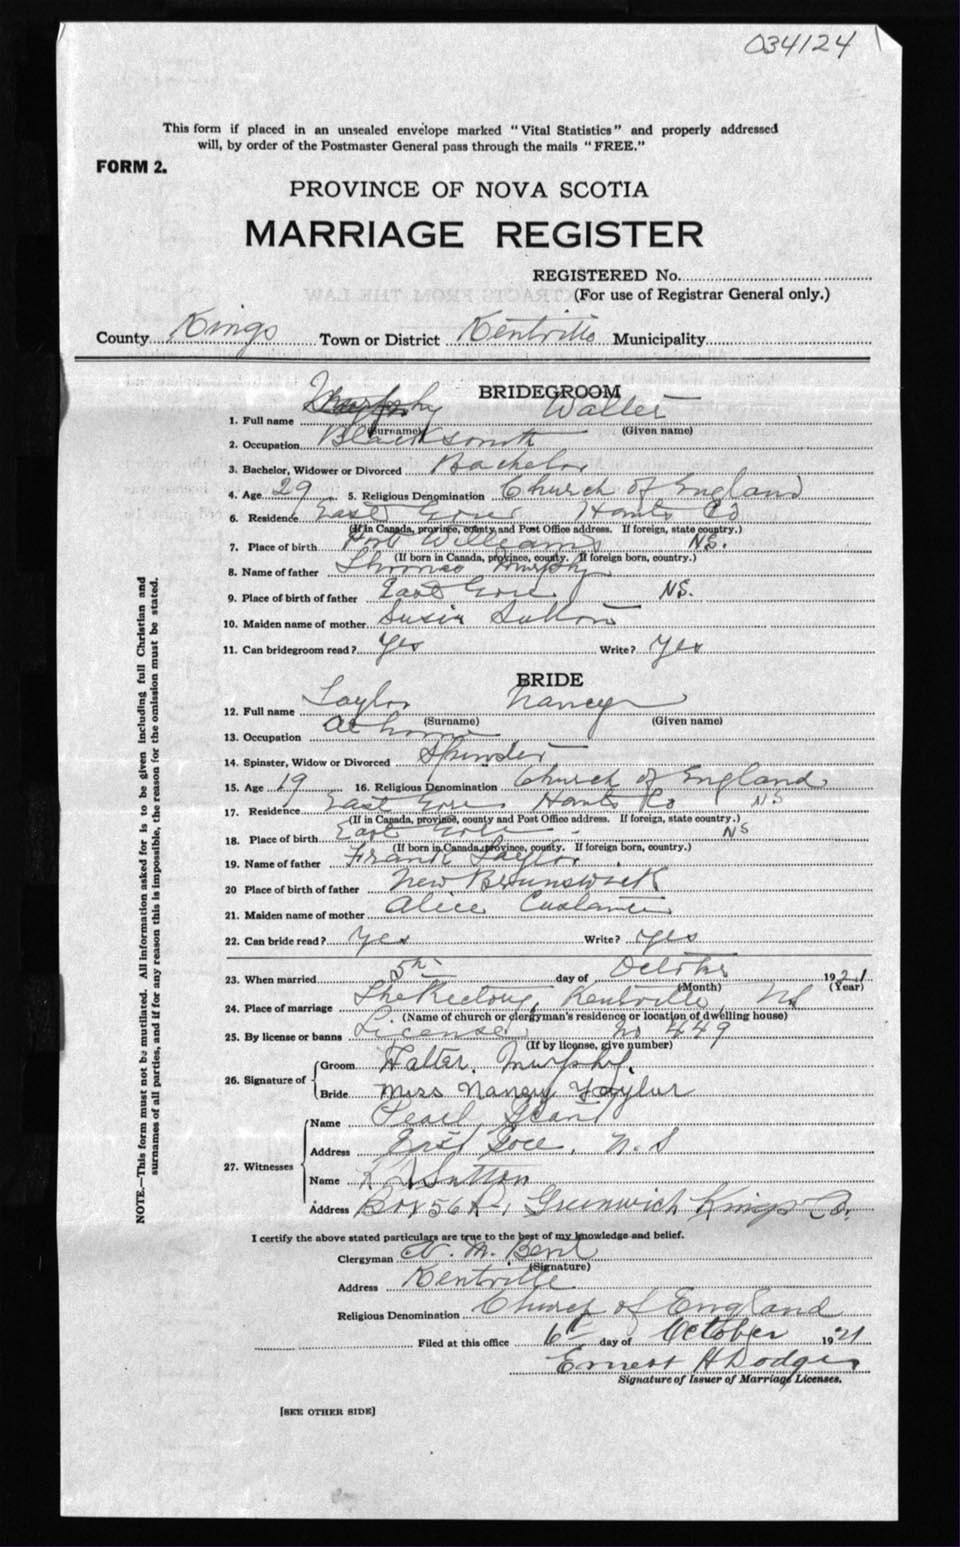 034124
This form if placed in an unsealed envelope marked "Vital Statistics" and properly addressed
will, by order of the Postmaster General pass through the mails "FREE."
FORM 2.
PROVINCE OF NOVA SCOTIA
MARRIAGE REGISTER
REGISTERED No.
(For use of Registrar General only.)
County Kings Town or District Kentville Municipality
BRIDEGROOM
1. Full name Murphy Walter
(Surname) (Given name)
2. Occupation Blacksmith
3. Bachelor, Widower or Divorced Bachelor
4. Age 29 5. Religious Denomination Church of England
6. Residence East Gore Hants Co
(If in Canada, province, county and Post Office address. If foreign, state country.)
7. Place of birth Port Williams NS.
(If born in Canada, province, county. If foreign born, country.)
8. Name of father Murphy
9. Place of birth of father East Gore NS.
10. Maiden name of mother Susie Sutton
11. Can bridegroom read? Yes Write? Yes
BRIDE
12. Full name Taylor Nancy
(Surname) (Given name)
13. Occupation At home
14. Spinster, Widow or Divorced Spinster
15. Age 19 16. Religious Denomination Church of England
17. Residence East Gore Hants Co NS
(If in Canada, province, county and Post Office address. If foreign, state country.)
18. Place of birth East Gore NS
(If born in Canada, province, county. If foreign born, country.)
19. Name of father Frank Taylor
20 Place of birth of father New Brunswick
21. Maiden name of mother Alice
22. Can bride read? Yes Write? Yes
23. When married 5th day of October 1921
(Month) (Year)
24. Place of marriage The Rectory, Kentville, NS
(Name of church or clergyman's residence or location of dwelling house)
25. By license or banns License No 449
(If by license, give number)
26. Signature of Groom Walter Murphy
Bride Miss Nancy Taylor
27. Witnesses Name Pearl Grant
Address East Gore, N.S
Name Sutton
Address Box 56 R-1 Greenwich Kings Co.
I certify the above stated particulars are true to the best of my knowledge and belief.
Clergyman M. Bent
(Signature)
Address Kentville
Religious Denomination Church of England
Filed at this office 6th day of October 1921
Ernest H Dodge
Signature of Issuer of Marriage Licenses.
[SEE OTHER SIDE]
NOTE.—This form must not be mutilated. All information asked for is to be given including full Christian and
surnames of all parties, and if for any reason this is impossible, the reason for the omission must be stated.